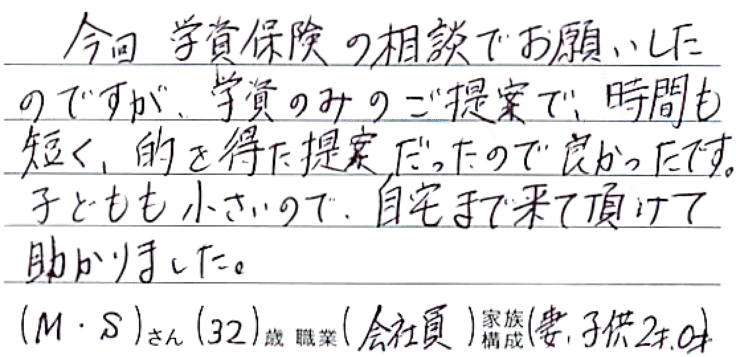 今回 学資保険の相談でお願いした
のですが、学資のみのご提案で、時間も
短く、的を得た提案だったので良かったです。
子どもも小さいので、自宅まで来て頂けて
助かりました。
(M・S)さん(32)歳 職業(会社員)家族構成(妻、子供2才、0才